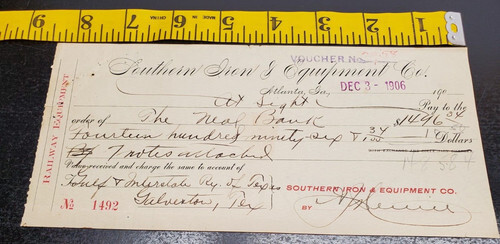 9 8 7 6 5 4 3 2 1
MADE IN CHINA
VOUCHER No.
Southern Iron & Equipment Co.
Atlanta, Ga, DEC 3 - 1906 190
At Sight Pay to the
order of The Neal Bank $1496 34
Fourteen hundred ninety-six & 34 Dollars
7 notes attached
Value received and charge the same to account of
Gulf & Interstate Ry. of Texas
Galveston, Tex
SOUTHERN IRON & EQUIPMENT CO.
№ 1492
BY
RAILWAY EQUIPMENT